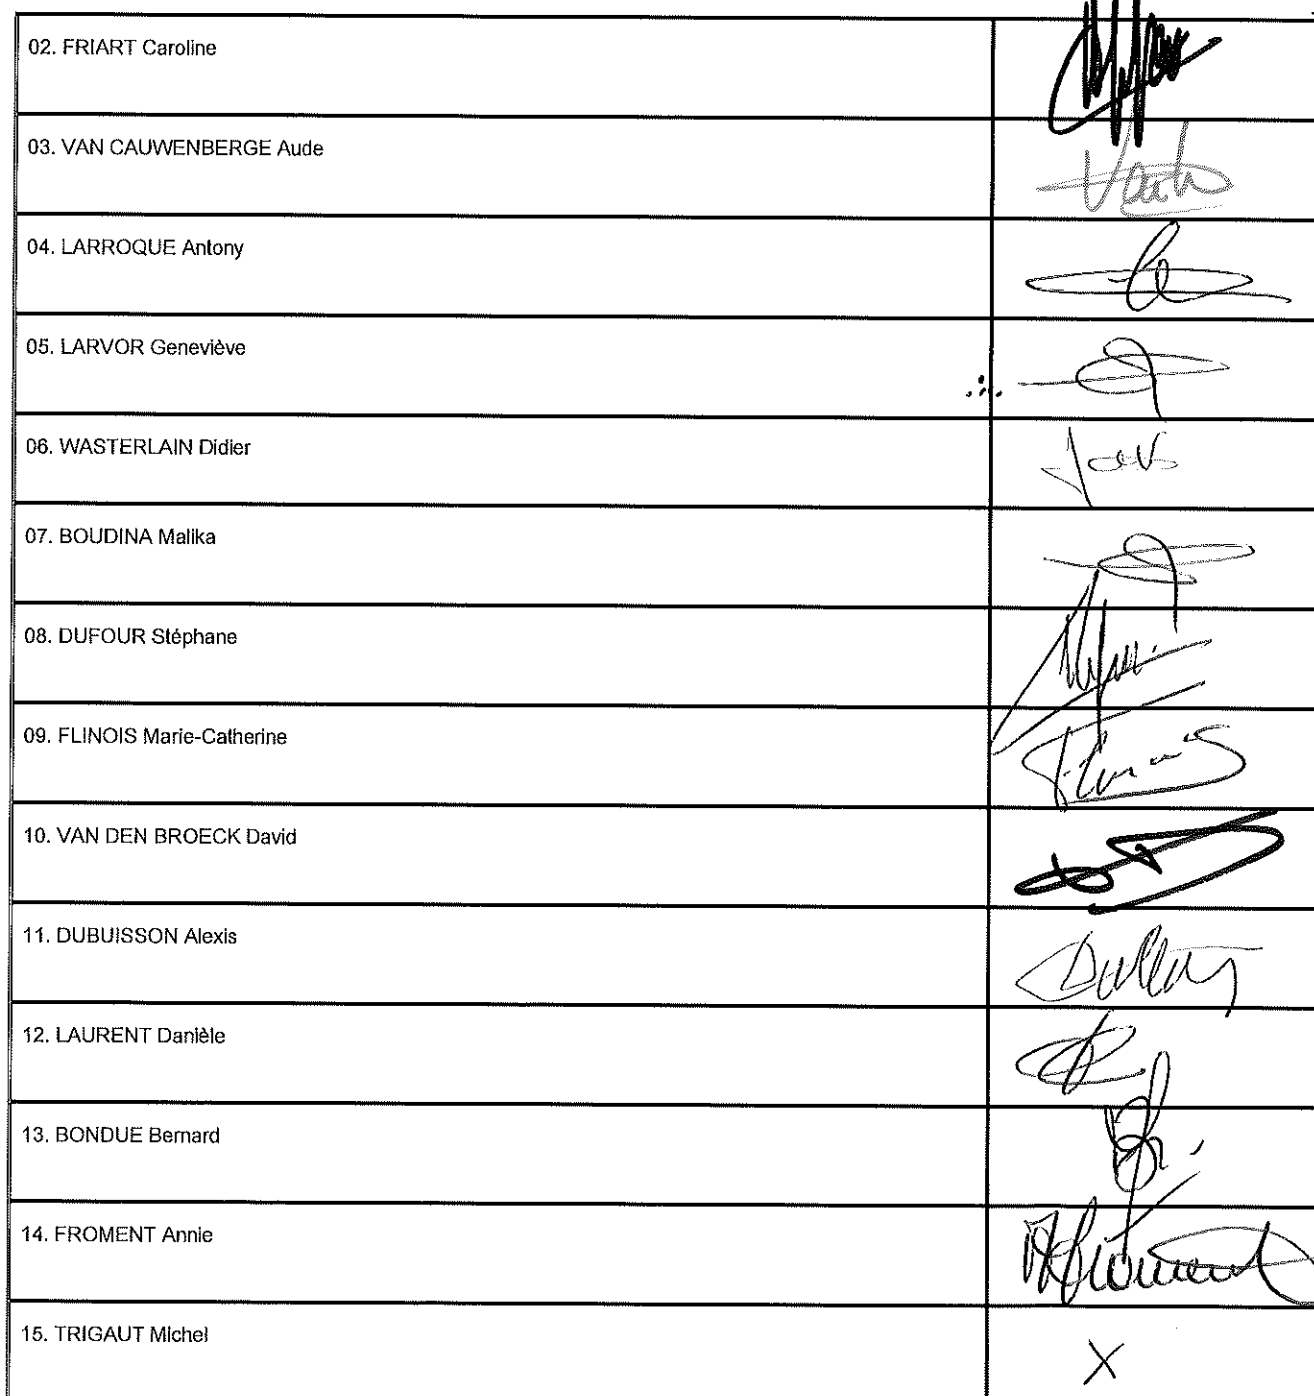 02. FRIART Caroline
03. VAN CAUWENBERGE Aude
04. LARROQUE Antony
05. LARVOR Geneviève
06. WASTERLAIN Didier
07. BOUDINA Malika
08. DUFOUR Stéphane
09. FLINOIS Marie-Catherine
10. VAN DEN BROECK David
11. DUBUISSON Alexis
12. LAURENT Danièle
13. BONDUE Bernard
14. FROMENT Annie
15. TRIGAUT Michel
X